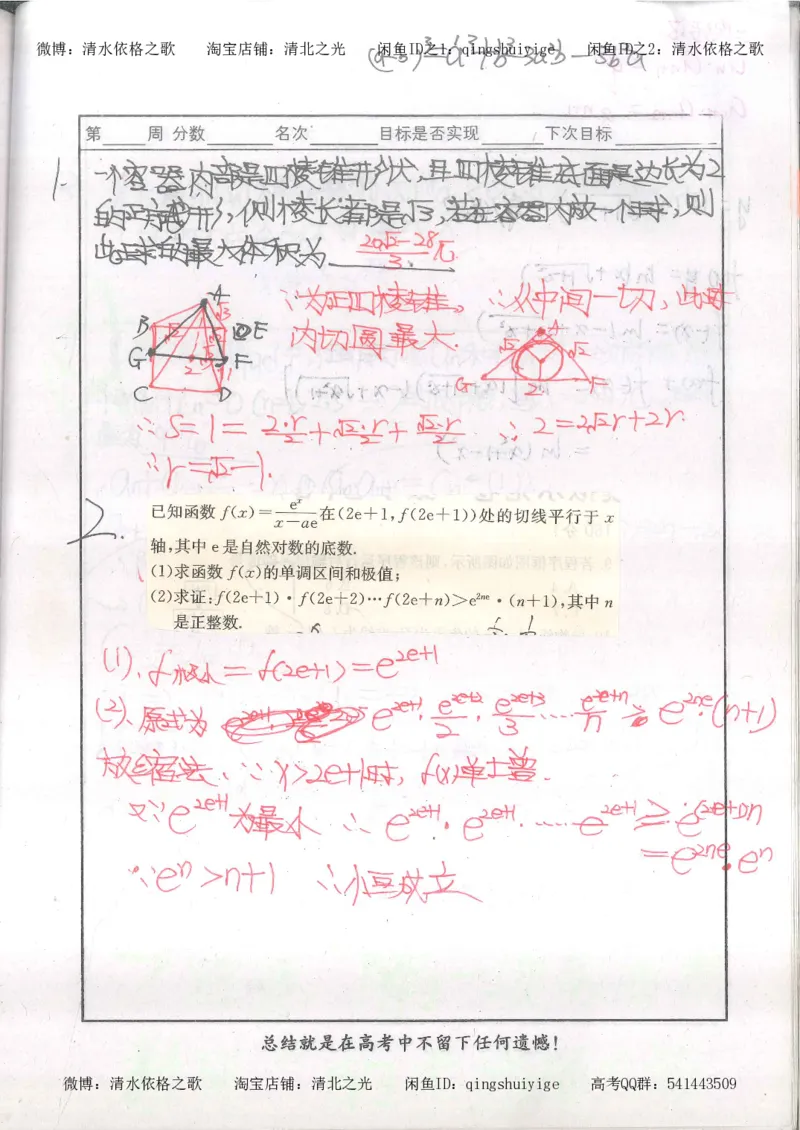 微博：清水依格之歌 淘宝店铺：清北之光 闲鱼ID之1：qingshuiyige 闲鱼ID之2：清水依格之歌
第 周 分数 名次 目标是否实现 下次目标
1. 一个容器内部是四棱锥形状,且四棱锥底面是边长为2
的正方形,侧棱长都是√3,若在容器内放一个球,则
此球的最大体积为 (20√2-28)/3 π.
∵为正四棱锥。 ∴从中间一切,此球
内切圆最大.
A
B
E
G
F
C
D
√3
√2
2
1
A
√2
√2
G
F
2
∴S=1=2·r/2+√2·r/2+√2·r/2 ∴2=2√2r+2r.
∴r=√2-1.
2.
已知函数 f(x)=e^x/(x-ae) 在(2e+1,f(2e+1))处的切线平行于 x
轴,其中 e 是自然对数的底数.
(1)求函数 f(x)的单调区间和极值;
(2)求证:f(2e+1)·f(2e+2)…f(2e+n)>e^{2ne}·(n+1),其中 n
是正整数.
(1)、f极小=f(2e+1)=e^{2e+1}
(2)、原式为 e^{2e+1}·e^{2e+2}/2·e^{2e+3}/3…·e^{2e+n}/n ≥ e^{2ne}·(n+1)
放缩法、∵x>2e+1时, f(x)单增.
又∵e^{2e+1}为最小 ∴e^{2e+1}·e^{2e+1}·……e^{2e+1}≥e^{(2e+1)n}
=e^{2ne}·e^n
∵e^n>n+1 ∴恒成立
总结就是在高考中不留下任何遗憾！
微博：清水依格之歌 淘宝店铺：清北之光 闲鱼ID：qingshuiyige 高考QQ群：541443509